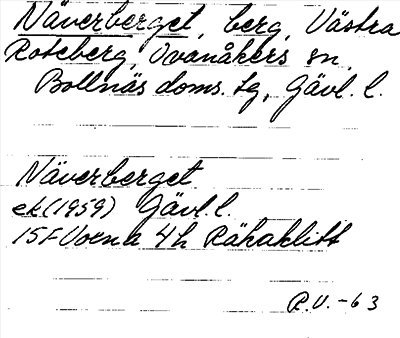 Näverberget, berg, Västra
Roteberg, Ovanåkers sn,
Bollnäs doms. tg, Gävl. l.
Näverberget
ek (1959) Gävl. l.
15F Voxna 4h Råhaklitt
R.V. -63